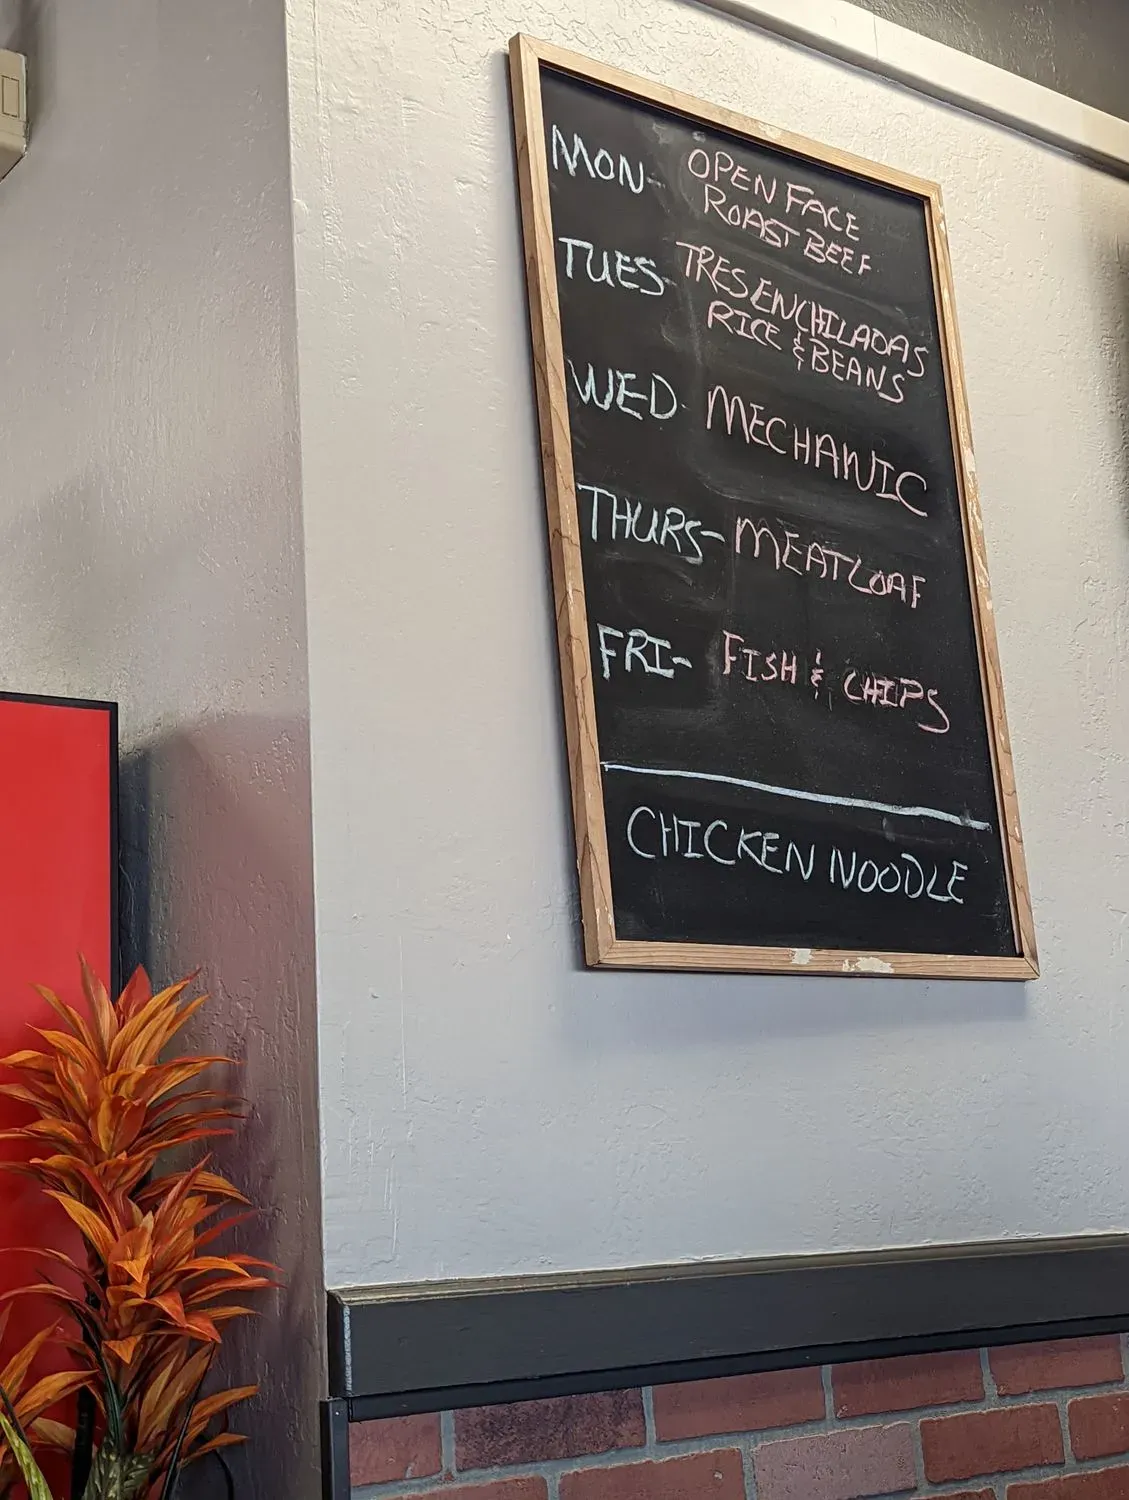 MON- OPEN FACE
ROAST BEEF
TUES- TRES ENCHILADAS
RICE & BEANS
WED- MECHANIC
THURS- MEATLOAF
FRI- FISH & CHIPS
CHICKEN NOODLE